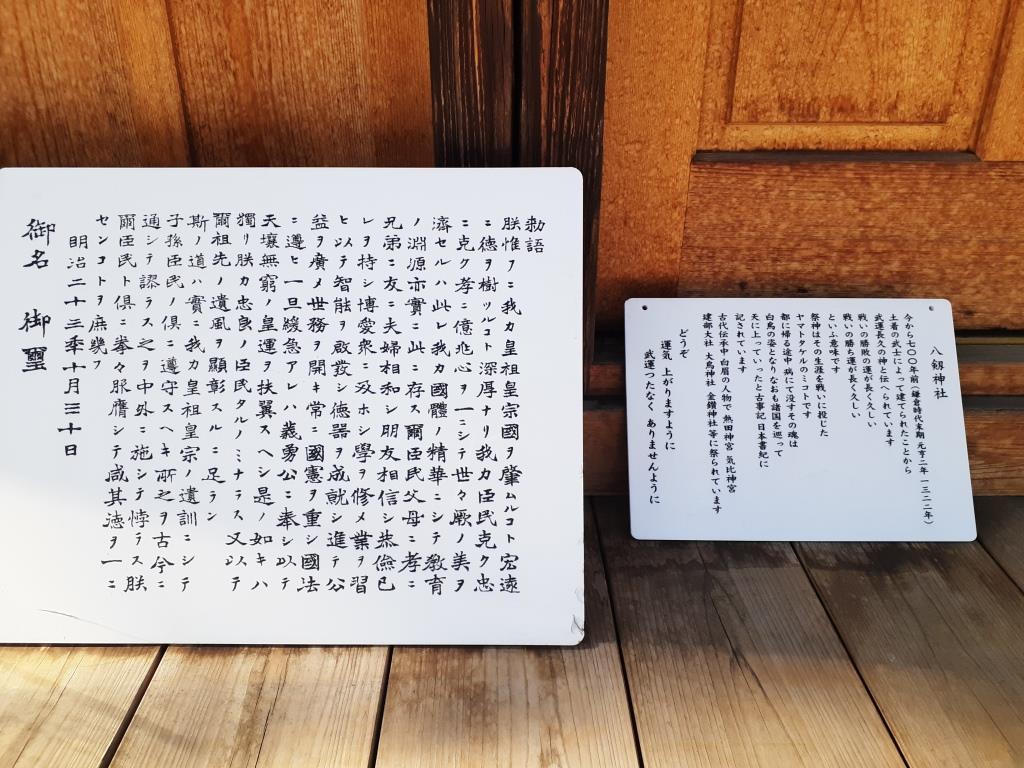 勅語
朕惟フニ我カ皇祖皇宗國ヲ肇ムルコト宏遠
ニ德ヲ樹ツルコト深厚ナリ我カ臣民克ク忠
ニ克ク孝ニ億兆心ヲ一ニシテ世々厥ノ美ヲ
濟セルハ此レ我カ國體ノ精華ニシテ教育
ノ淵源亦實ニ此ニ存ス爾臣民父母ニ孝ニ
兄弟ニ友ニ夫婦相和シ朋友相信シ恭儉己
レヲ持シ博愛衆ニ及ホシ學ヲ修メ業ヲ習
ヒ以テ智能ヲ啟發シ德器ヲ成就シ進テ公
益ヲ廣メ世務ヲ開キ常ニ國憲ヲ重シ國法
ニ遵ヒ一旦緩急アレハ義勇公ニ奉シ以テ
天壤無窮ノ皇運ヲ扶翼スヘシ是ノ如キハ
獨リ朕カ忠良ノ臣民タルノミナラス又以テ
爾祖先ノ遺風ヲ顯彰スルニ足ラン
斯ノ道ハ實ニ我カ皇祖皇宗ノ遺訓ニシテ
子孫臣民ノ倶ニ遵守スヘキ所之ヲ古今ニ
通シテ謬ラス之ヲ中外ニ施シテ悖ラス朕
爾臣民ト倶ニ拳々服膺シテ咸其德ヲ一ニ
センコトヲ庶幾フ
明治二十三年十月三十日
御名 御璽
八剱神社
今から七〇〇年前(鎌倉時代末期 元亨二年 一三二二年)
土着の武士によって建てられたことから
武運長久の神と伝へられています
戦いの勝敗の運が長く久しい
戦いの勝ち運が長く久しい
といふ意味です
祭神はその生涯を戦いに投じた
ヤマトタケルのミコトです
都に帰る途中 病にて没すその魂は
白鳥の姿となり なおも諸国を巡って
天に上っていったと古事記 日本書紀に
記されています
古代伝承中 白眉の人物で 熱田神宮 気比神宮
建部大社 大鳥神社 金鑚神社 等に祭られています
どうぞ
運気 上がりますように
武運つたなく ありませんように